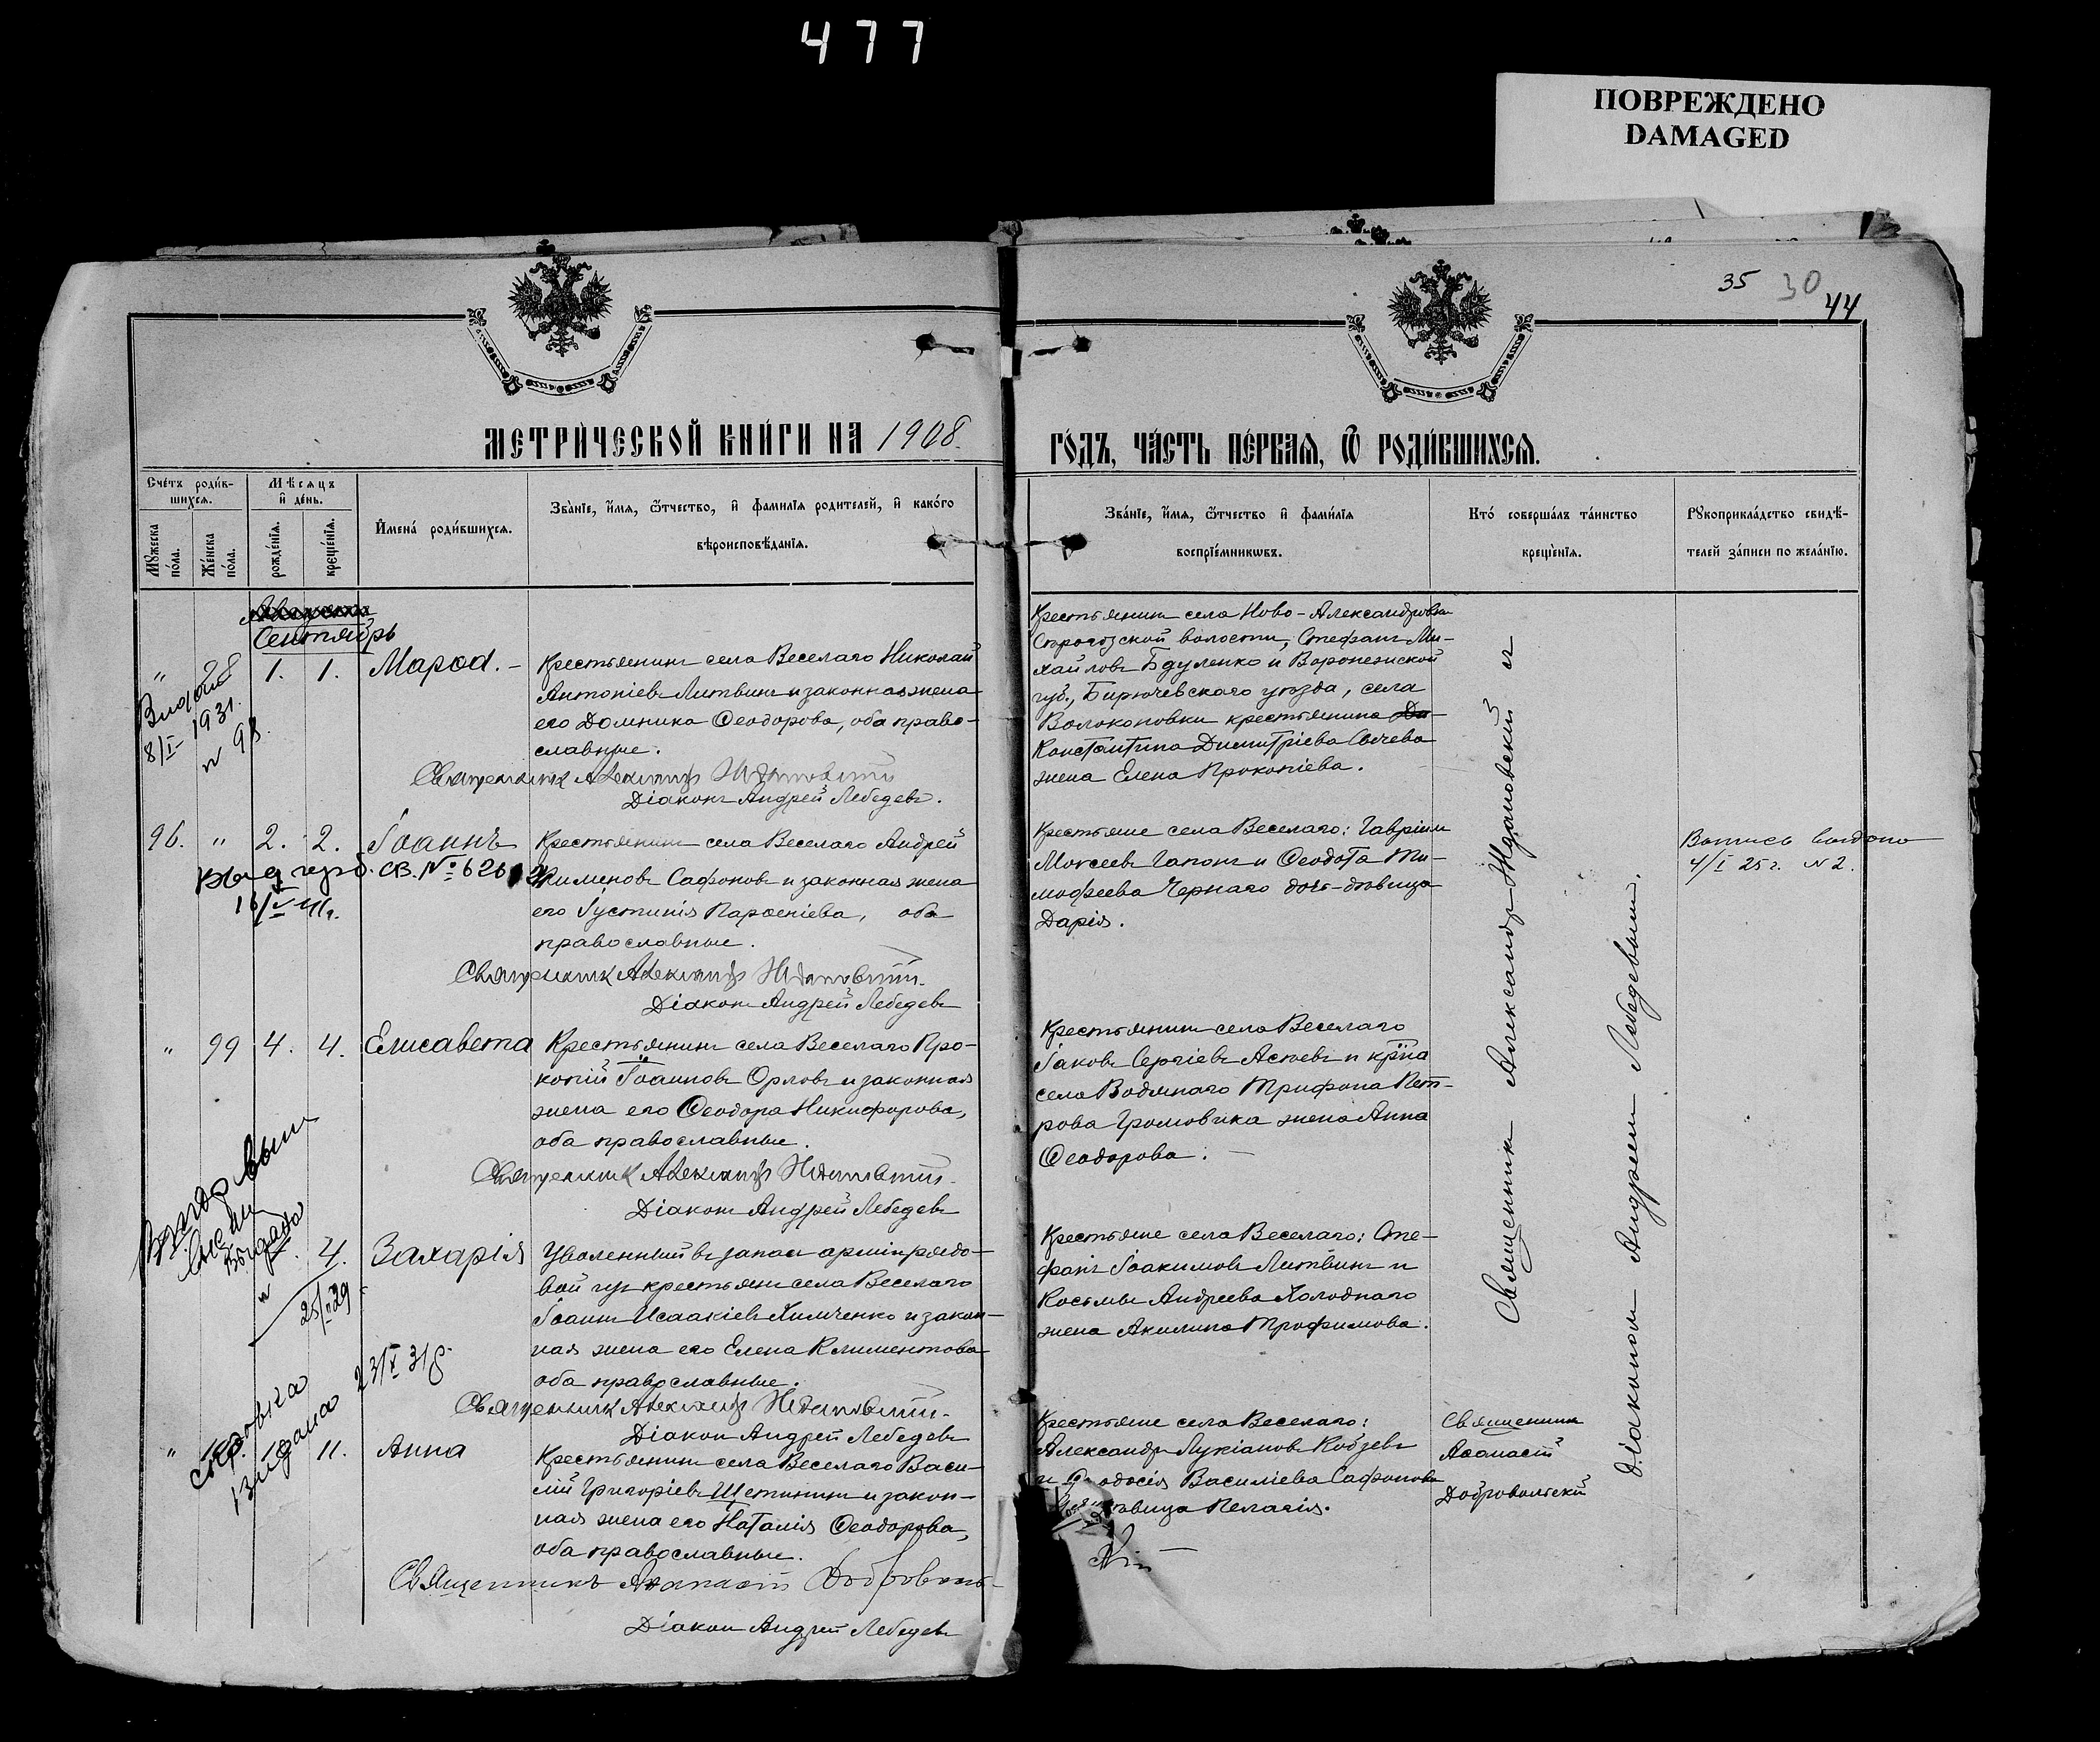 477
ПОВРЕЖДЕНО
DAMAGED
35 30 44
МЕТРИЧЕСКОЙ КНИГИ НА 1908.
ГОДЪ, ЧАСТЬ ПЕРВАЯ, Ѿ РОДИВШИХСЯ.
Счетъ родив-
шихся.
Мѣсяцъ
и день.
Мужеска
пола.
Женска
пола.
рожденія.
крещенія.
Имена родившихся.
Званіе, имя, ѿчество, и фамилія родителей, и какого
вѣроисповѣданія.
Званіе, имя, ѿчество и фамилія
воспріемниковъ.
Кто совершалъ таинство
крещенія.
Рукоприкладство свидѣ-
телей записи по желанію.
Сентябрь
" 98 1. 1.
8/I- 1931.
N 98.
Крестьянинъ села Веселаго Николай
Антоніевъ Литвинъ и законная жена
его Домника Ѳеодорова, оба право-
славные.
Священникъ Александръ Ждановскій
Діаконъ Андрей Лебедевъ.
Крестьянинъ села Ново-Александровки
волости, Стефанъ Ми-
хайловъ и Воронежской
губ., Бирючевскаго уѣзда, села
Волоконовки крестьянина
Константина Димитріева Сычева
жена Елена Прокопіева.
96. " 2. 2. Іоаннъ
св. № 626
16/V 41г.
Крестьянинъ села Веселаго Андрей
Пименовъ Сафоновъ и законная жена
его Іустинія Парѳеніева, оба
православные.
Священникъ Александръ Ждановскій.
Діаконъ Андрей Лебедевъ
Крестьяне села Веселаго: Гавріилъ
Моисеевъ Гапонъ и Ѳеодота Ти-
моѳеева Чернаго дочь-дѣвица
Дарія.
Выпись выдана
4/I 25 г. N 2.
" 99 4. 4. Елисавета
Крестьянинъ села Веселаго Про-
копій Іоанновъ Орловъ и законная
жена его Ѳеодора Никифорова,
оба православные.
Священникъ Александръ Ждановскій.
Діаконъ Андрей Лебедевъ
Крестьянинъ села Веселаго
Іаковъ Сергіевъ и кр-на
села Водянаго Трифона Пет-
рова Громовика жена Анна
Ѳеодорова.
4. Захарія
25/II 29
Уволенный въ запасъ арміи рядо-
вой изъ крестьянъ села Веселаго
Іоаннъ Исаакіевъ Химченко и закон-
ная жена его Елена Климентова
оба православные.
Священникъ Александръ Ждановскій.
Діаконъ Андрей Лебедевъ
Крестьяне села Веселаго: Сте-
фанъ Іоакимовъ Литвинъ и
Космы Андреева Холоднаго
жена Акилина Трофимова.
Священникъ Александръ Ждановскій съ
діакономъ Андреемъ Лебедевымъ.
" 11. Анна
видана 23/X 31р.
Крестьянинъ села Веселаго Васи-
лій Григоріевъ Щетининъ и закон-
ная жена его Наталія Ѳеодорова,
оба православные.
Священникъ Аѳанасій
Діаконъ Андрей Лебедевъ
Крестьяне села Веселаго:
Александръ Лукіановъ Кобзевъ
и Ѳеодосія Василіева Сафонова
дѣвица Пелагія.
Священникъ
Аѳанасій
Добровольскій